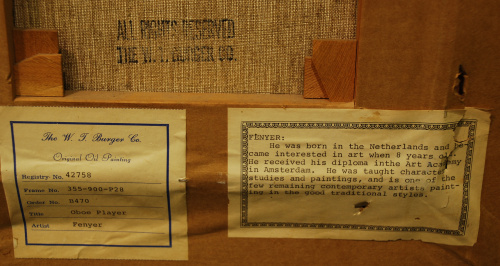 ALL RIGHTS RESERVED
THE W. T. BURGER CO.
The W. T. Burger Co.
Original Oil Painting
Registry No. 42758
Frame No. 355-900-P28
Order No. B470
Title Oboe Player
Artist Fenyer
FENYER:
He was born in the Netherlands and be-
came interested in art when 8 years old.
He received his diploma inthe Art Academy
in Amsterdam. He was taught character
studies and paintings, and is one of the
few remaining contemporary artists paint-
ing in the good traditional styles.